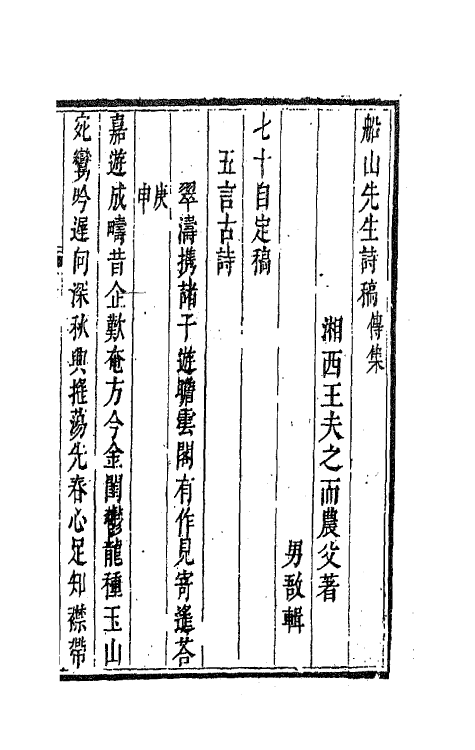 船山先生詩稿傳集
湘西王夫之而農父著
男敔輯
七十自定稿
五言古詩
翠濤携諸子遊瞻雲閣有作見寄遙荅
庚申
嘉遊成疇昔企歎奄方今金閨鬱龍種玉山
宛鸞吟遲向深秋興摧蕩先春心足知襟帶